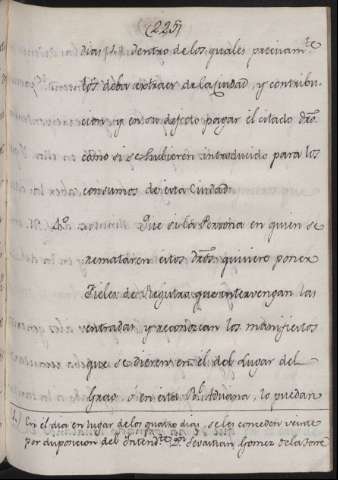 (225)
dias (4) dentro de los quales precisam.te
los deba extraer de la Ciudad, y contribu-
cion, y en su defecto pagar el citado dro.
como si se hubieren introducido para los
consumos de esta Ciudad.
4.o Que si la Persona en quien se
remataren estos dros. quiziere poner
Fieles de Registro que intervengan las
entradas, y reconozcan los manifiestos
que se dieren en el del Lugar del
Grao, ò en esta Rl. Aduana, lo puedan
En el dia en lugar de los quatro dias, se les conceden veinte
por disposicion del Intend.te Dn. Sevastian Gomez de la Torre